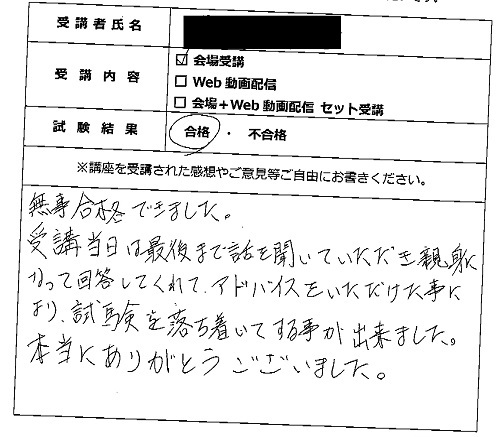 受講者氏名
受講内容
☑ 会場受講
□ Web動画配信
□ 会場＋Web動画配信 セット受講
試験結果
合格 ・ 不合格
※講座を受講された感想やご意見等ご自由にお書きください。
無事合格できました。
受講当日は最後まで話を聞いていただき親身に
なって回答してくれて、アドバイスをいただけた事に
より、試験を落ち着いてする事が出来ました。
本当にありがとうございました。